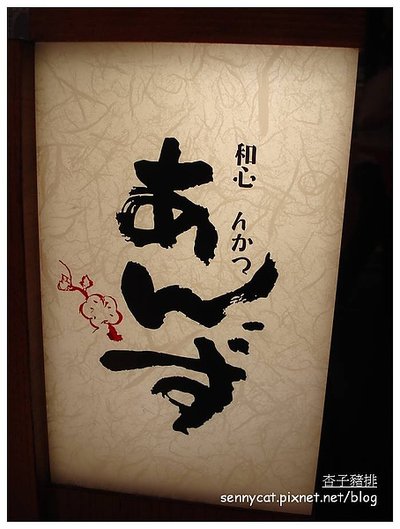 和心 んかつ
あんず
杏子豬排
sennycat.pixnet.net/blog